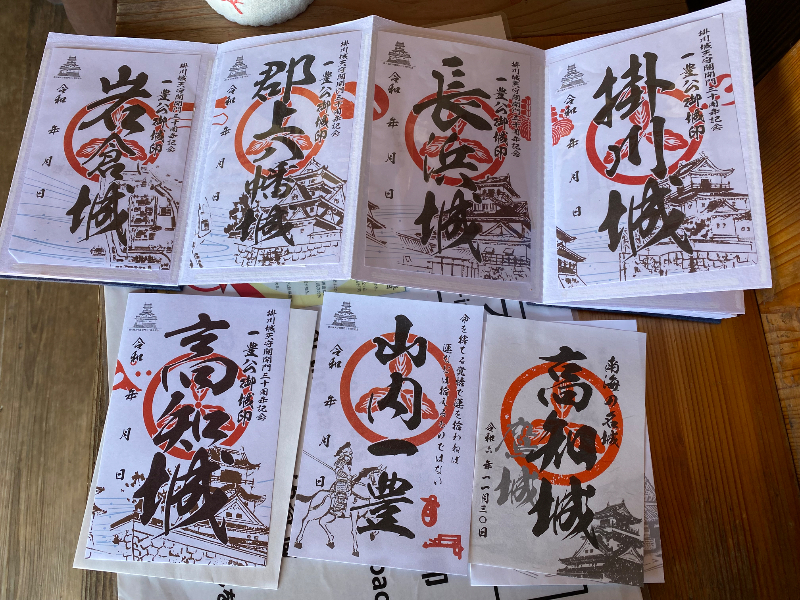 掛川城天守閣開門三十周年記念
一豊公御城印
岩倉城
令和 年 月 日
掛川城天守閣開門三十周年記念
一豊公御城印
郡上八幡城
令和 年 月 日
掛川城天守閣開門三十周年記念
一豊公御城印
長浜城
令和 年 月 日
掛川城天守閣開門三十周年記念
一豊公御城印
掛川城
令和 年 月 日
掛川城天守閣開門三十周年記念
一豊公御城印
高知城
令和 年 月 日
命を捨てる覚悟で運を拾わねば
運などは拾えるものではない
山内一豊
令和 年 月 日
南海の名城
高知城
鷹城
令和六年一一月三〇日